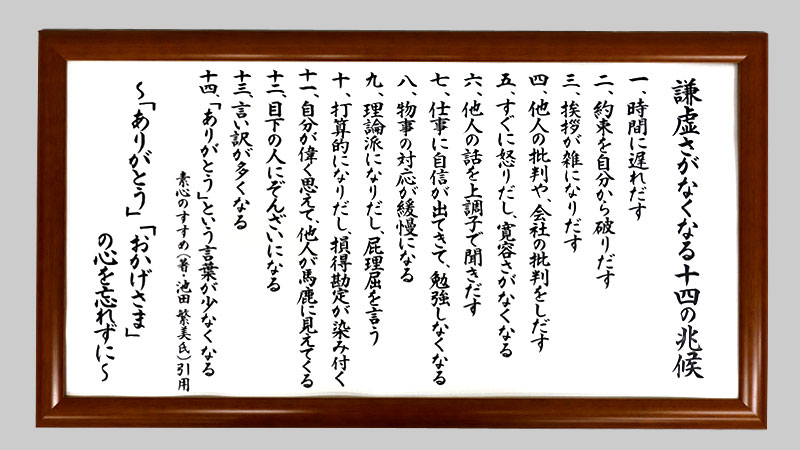 謙虚さがなくなる十四の兆候
一、時間に遅れだす
二、約束を自分から破りだす
三、挨拶が雑になりだす
四、他人の批判や、会社の批判をしだす
五、すぐに怒りだし、寛容さがなくなる
六、他人の話を上調子で聞きだす
七、仕事に自信が出てきて、勉強しなくなる
八、物事の対応が緩慢になる
九、理論派になりだし、屁理屈を言う
十、打算的になりだし、損得勘定が染み付く
十一、自分が偉く思えて、他人が馬鹿に見えてくる
十二、目下の人にぞんざいになる
十三、言い訳が多くなる
十四、「ありがとう」という言葉が少なくなる
素心のすすめ(著・池田 繁美氏)引用
〜「ありがとう」「おかげさま」
の心を忘れずに〜